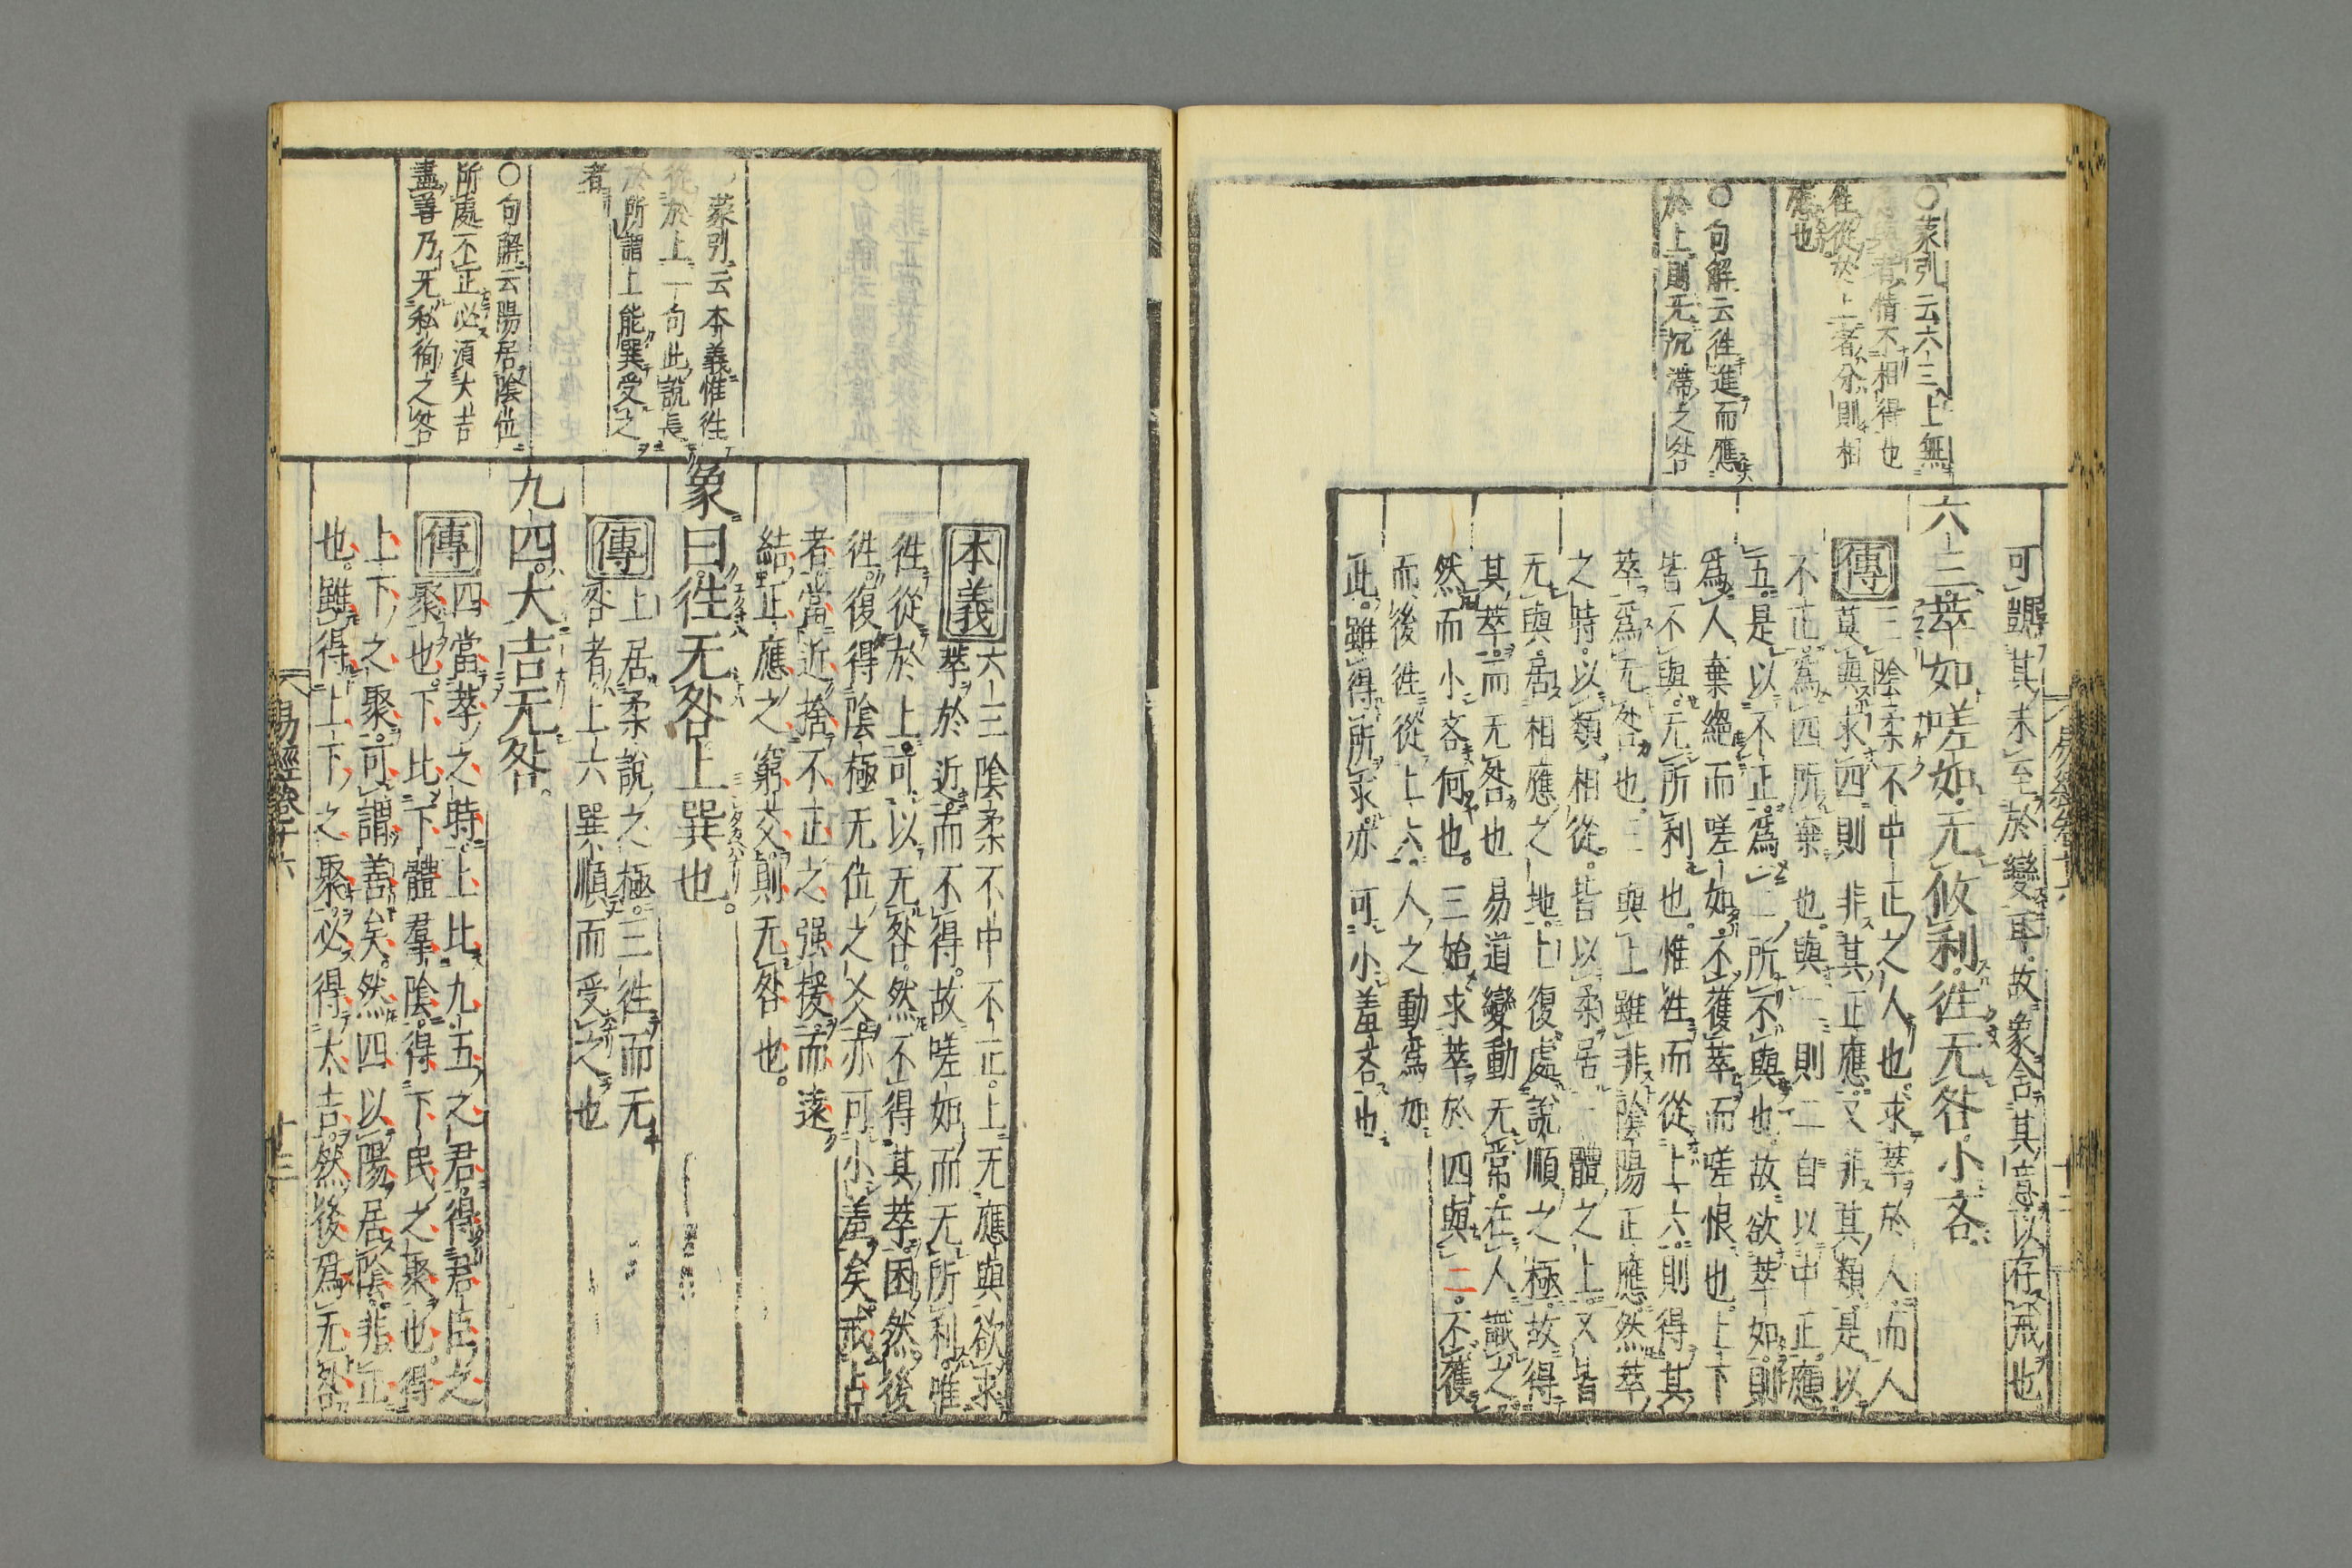 ○蒙引云六三上無
應與者情不相得也
徃從於上者分則相
應也
○句解云徃進而應
於上則无沉滯之咎
可謂其未至於變耳故象含其意以存戒也
六三萃如嗟如无攸利徃无咎小吝
傳三陰柔不中正之人也求萃於人而人
莫與求四則非其正應又非其類是以
不正爲四所棄也與二則二自以中正應
五是以不正爲二所不與也故欲萃如則
爲人棄絕而嗟如不獲萃而嗟恨也上下
皆不與无所利也惟徃而從上六則得其
萃爲无咎也三與上雖非陰陽正應然萃
之時以類相從皆以柔居一體之上又皆
无與居相應之地上復處說順之極故得
其萃而无咎也易道變動无常在人識之
然而小吝何也三始求萃於四與二不獲
而後徃從上六人之動爲如
此雖得所求亦可小羞吝也
易經卷十六
蒙引云本義惟徃
從於上一句此說長
於所謂上能巽受之
者
○句解云陽居陰位
所處不正必須大吉
盡善乃无私徇之咎
本義六三陰柔不中不正上无應與欲求
萃於近而不得故嗟如而无所利唯
徃從於上可以无咎然不得其萃困然後
徃復得陰極无位之爻亦可小羞矣戒占
者當近捨不正之强援而遠
結正應之窮交則无咎也
象曰徃无咎上巽也
傳上居柔說之極三徃而无
咎者上六巽順而受之也
九四大吉无咎
傳四當萃之時上比九五之君得君臣之
聚也下比下體羣陰得下民之聚也得
上下之聚可謂善矣然四以陽居陰非正
也雖得上下之聚必得大吉然後爲无咎
易經卷十六
十三